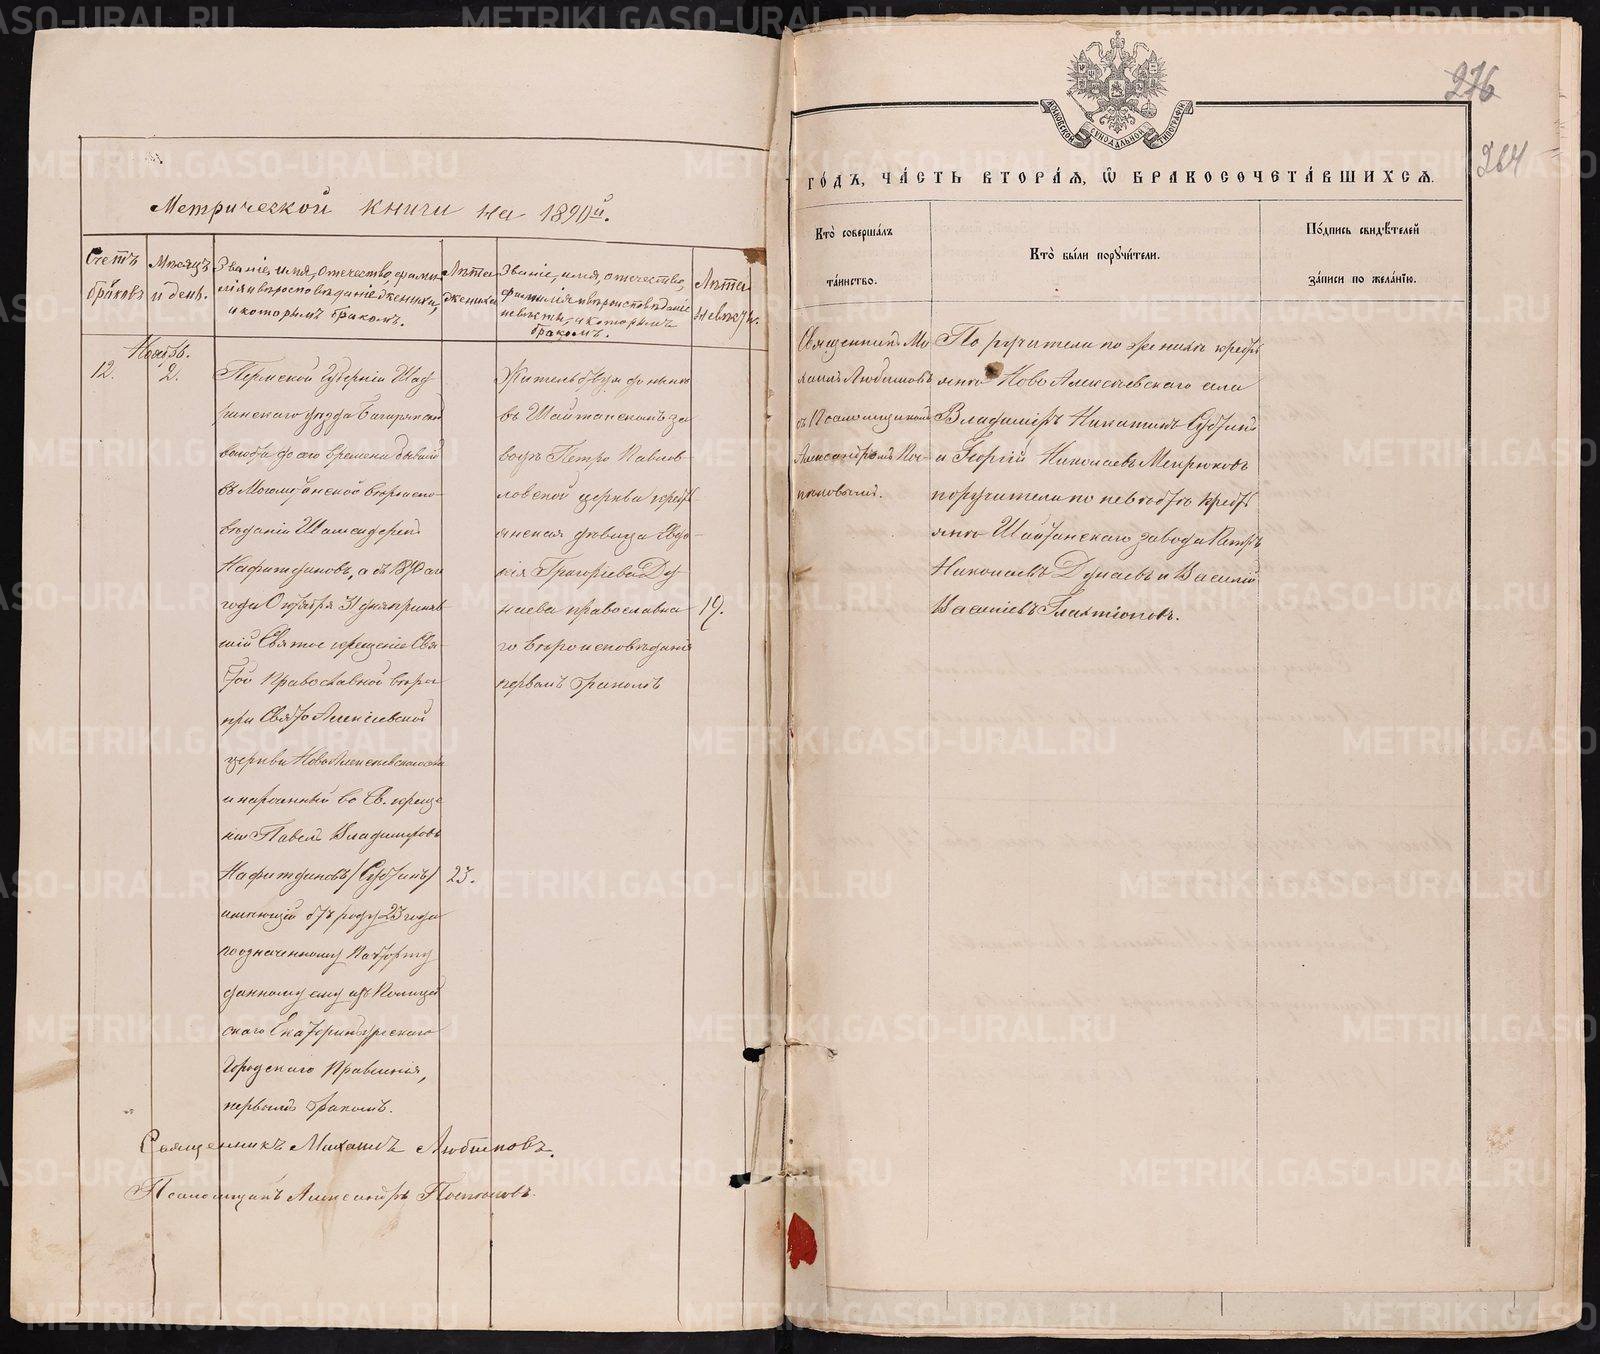 Метрической книги на 1890й.
Счетъ браковъ
Мѣсяцъ и день.
Званіе, имя, отечество, фами-
лія и вѣроисповѣданіе жениха,
и которымъ бракомъ.
Лѣта жениха
Званіе, имя, отечество,
фамилія и вѣроисповѣданіе
невѣсты, и которымъ
бракомъ.
Лѣта невѣсты.
12.
Ноябрь.
2.
Пермской Губерніи Шад
ринскаго уѣзда Багарякской
волости до сего времени бывшій
въ Могометанской вѣроиспо-
вѣданіи
Нафитдиновъ, а съ 1890 аго
года Октября 31 дня приняв-
шій Святое крещеніе Свя-
той Православной вѣры
при Свято Алексіевской
церкви Ново Алексѣевскаго села
и нареченный во Св. креще
ніи Павелъ Владимировъ
Нафитдиновъ (Субботинъ)
23.
имѣющій отъ роду 23 года
по означенному паспорту
данному ему изъ Полицей
скаго Екатеринбургскаго
Городскаго Правленія,
первымъ бракомъ.
Жительствующая до нынѣ
въ Шайтанскомъ за
водѣ Петро Павлов-
ловской церкви кресть
янская дѣвица Евдо-
кія Григоріева Ду
наева православна
го вѣроисповѣданія
первымъ бракомъ
19.
Священникъ Михаилъ Любимовъ.
Псаломщикъ Александръ
276
264
МОСКОВСКОЙ СѴНОДАЛЬНОЙ ТИПОГРАФІИ
ГО́ДЪ, ЧА́СТЬ ВТОРА́Я, Ѡ҆ БРАКОСОЧЕТА́ВШИХСЯ.
Кто̀ соверша́лъ
та́инство.
Кто̀ бы́ли порꙋчи́тели.
По́дпись свидѣ́телей
за́писи по жела́нїю.
Священникъ Ми
хаилъ Любимовъ
съ Псаломщикомъ
Александромъ
Поручители по женихѣ кресть
яне Ново Алексѣевскаго села
Владиміръ Никитинъ Субботинъ
и Георгій Николаевъ Мепрюковъ
поручители по невѣстѣ кресть
яне Шайтанскаго завода Петръ
Николаевъ Дунаевъ и Василій
Васильевъ Галактіоновъ.
METRIKI.GASO-URAL.RU